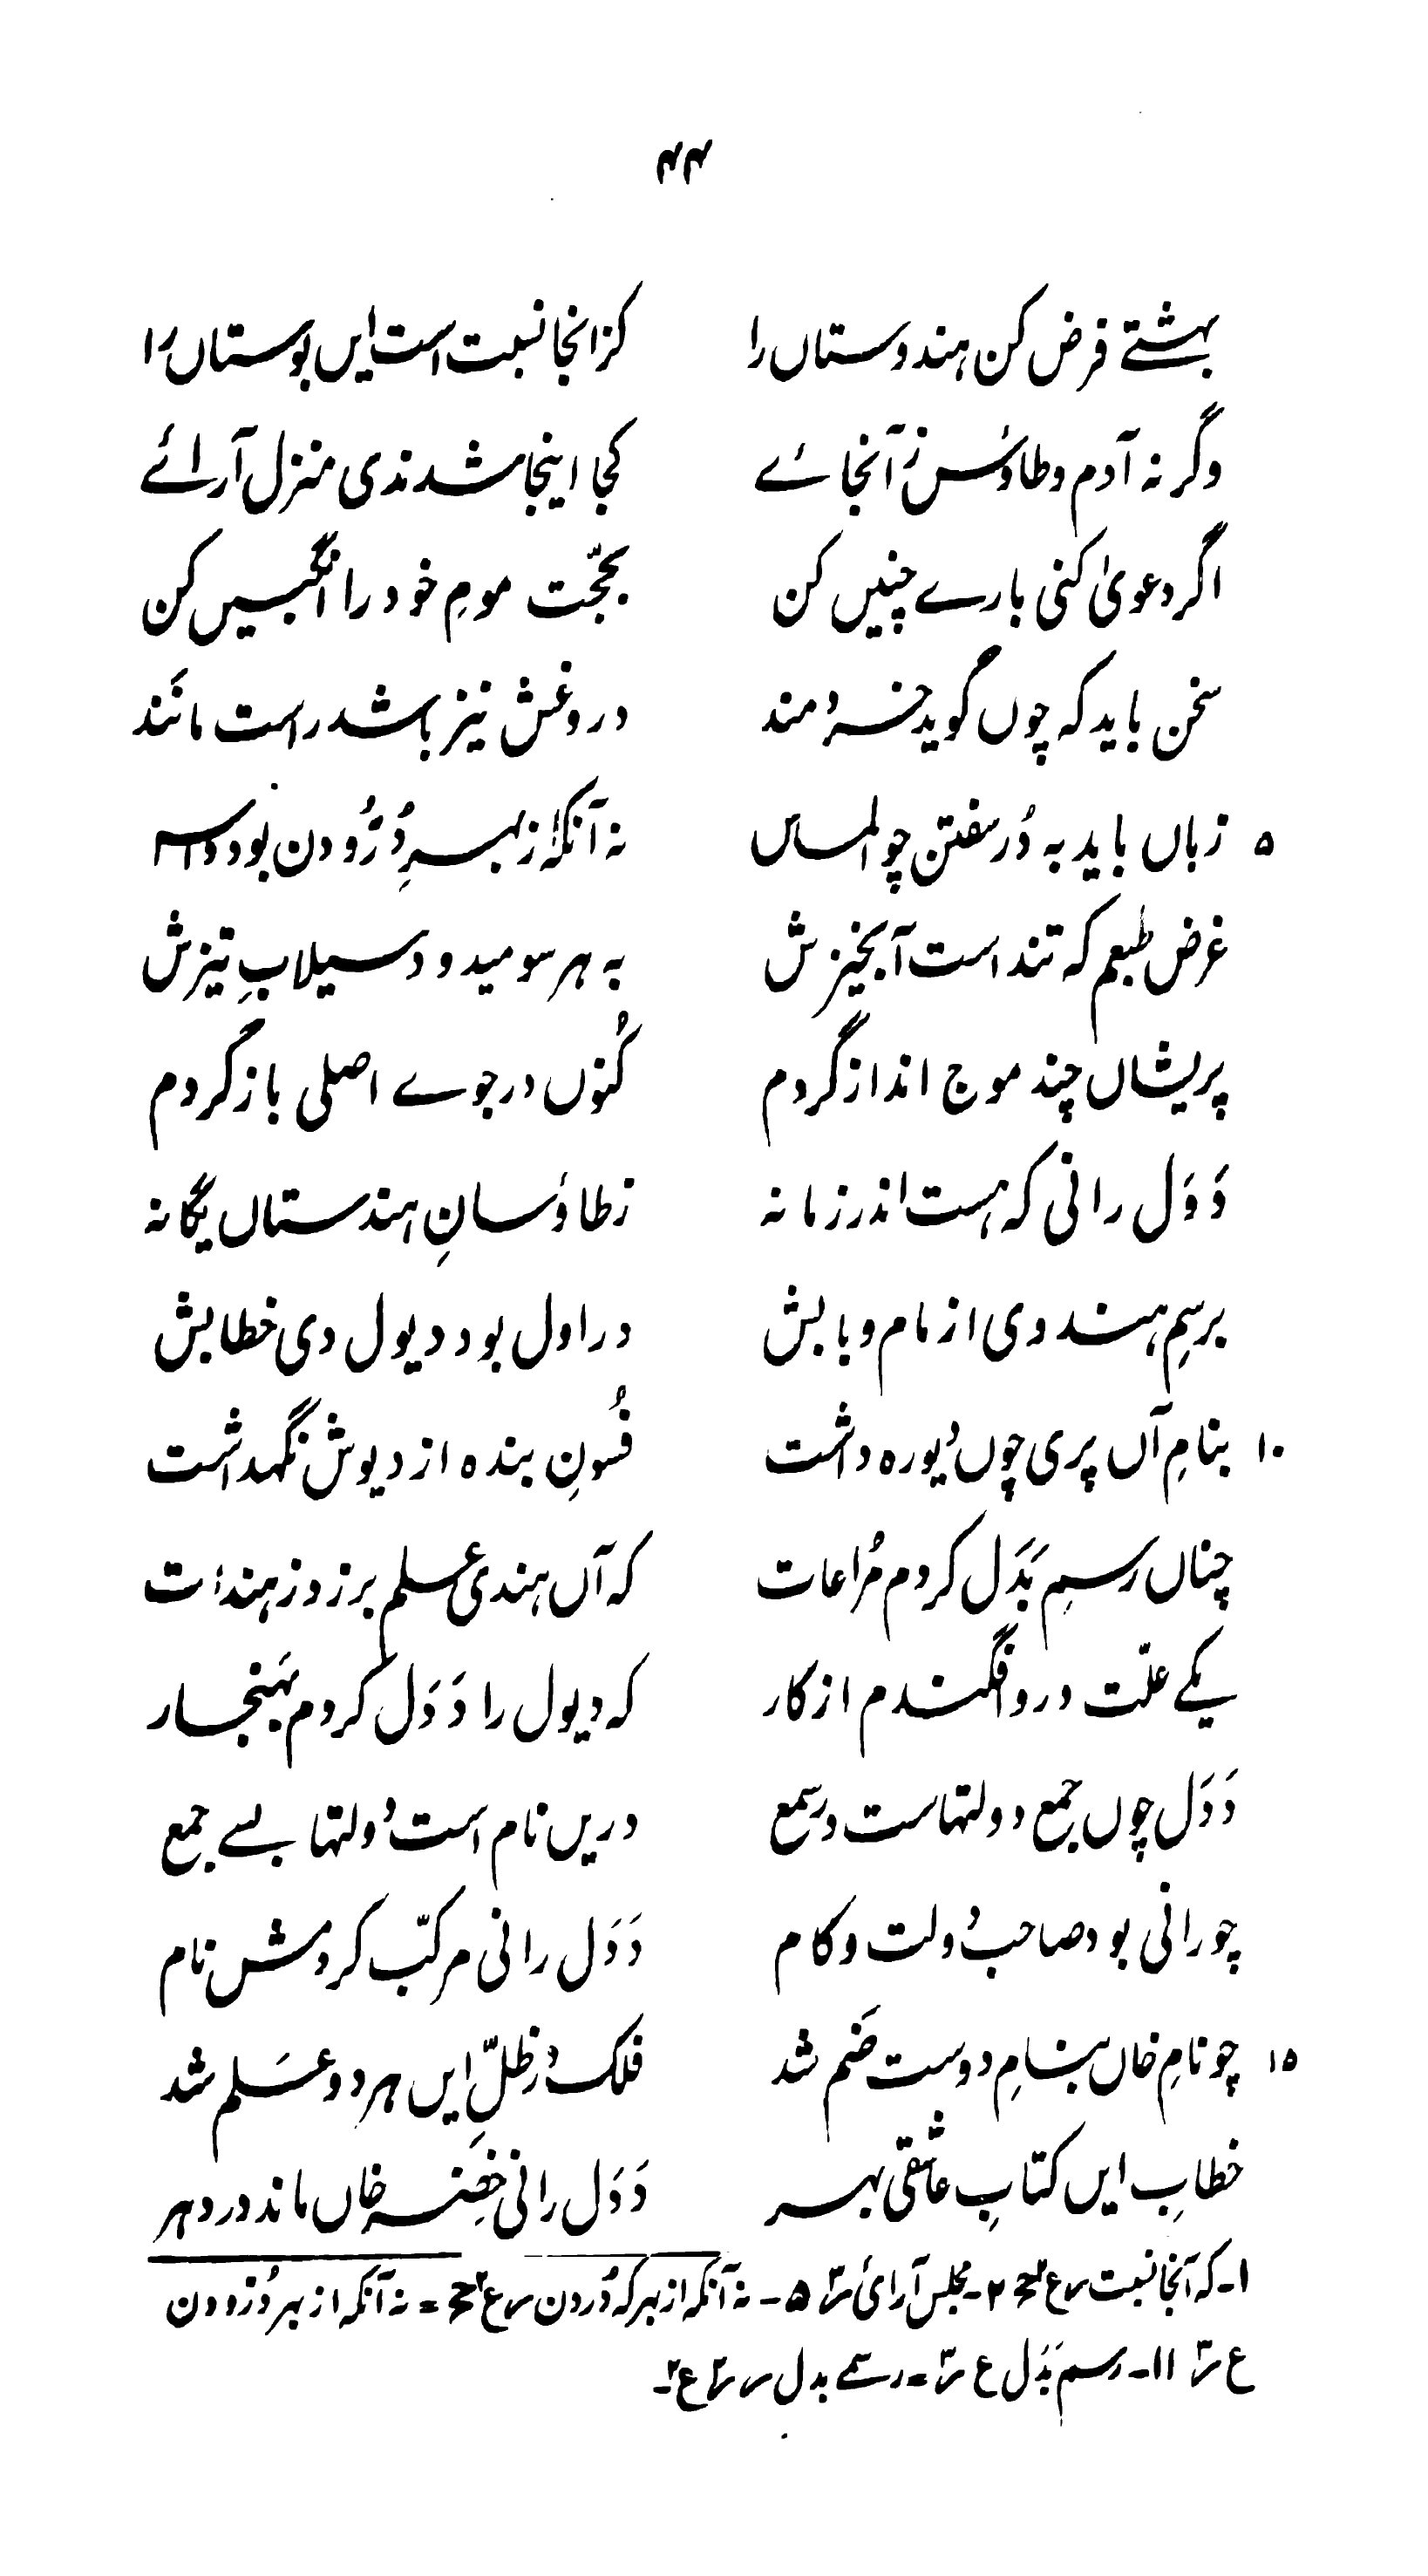 ۴۴
بہشتے فرض کن ہندوستاں را کز انجا نسبت است ایں بوستاں را
وگر نہ آدم و طاؤس ز آنجائے کجا اینجا شدندی منزل آرائے
اگر دعویٰ کنی بارے چنیں کن بحجّت مومِ خود را انگبیں کن
سخن باید کہ چوں گوید خردمند دروغش نیز باشد راست مانند
۵ زباں باید بہ دُر سفتن چو الماس نہ آنکہ از بہرِ دُرُّودن بود داس
غرض طبعم کہ تند است آبخیزش بہ ہر سو میدود سیلابِ تیزش
پریشاں چند موج انداز گردم کُنوں در جوے اصلی باز گردم
دَوَل رانی کہ ہست اندر زمانہ ز طاؤسانِ ہندستاں یگانہ
برسمِ ہندوی از مام و بابش در اول بود دیول دی خطابش
۱۰ بنامِ آں پری چوں دیو رہ داشت فُسونِ بندہ از دیوش نگہداشت
چناں رسمِ بَدَل کردم مُراعات کہ آں ہندی علم برزد ز ہندات
یکے علّت درو افگندم از کار کہ دیول را دَوَل کردم بہنجار
دَوَل چوں جمع دولتہاست در سمع دریں نام است دولتہا بسے جمع
چو رانی بود صاحب دولت و کام دَوَل رانی مرکّب کردمش نام
۱۵ چو نامِ خاں بنامِ دوست ضَم شد فلک در ظلِّ ایں ہر دو عَلم شد
خطابِ ایں کتابِ عاشقی بہر دَوَل رانی خضِر خاں ماند در دہر
۱۔ کہ آنجا نسبت ۲۔ مجلس آرائ ۵۔ نہ آنکہ از بہر کہ دُرودن = نہ آنکہ از بہر دُزودن
ع ۱۱۔ رسم بَدَل ع = رسمے بدل